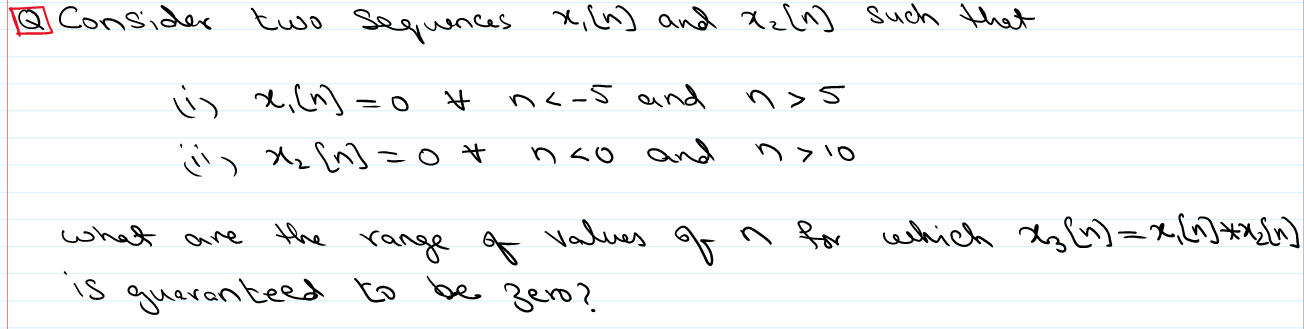 Q Consider two sequences x₁[n] and x₂[n] such that
(i) x₁[n] = 0 ∀ n < -5 and n > 5
(ii) x₂[n] = 0 ∀ n < 0 and n > 10
what are the range of values of n for which x₃[n] = x₁[n] * x₂[n]
is guaranteed to be zero?